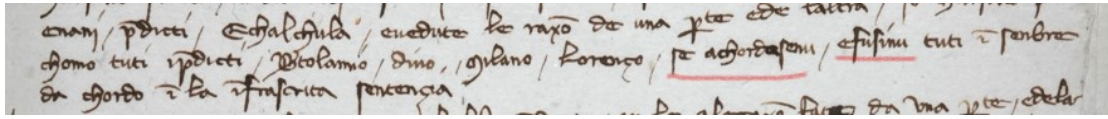 enani / pdicti / Echalchula / evedute le raxõ de una pte ede laltra /
chomo tuti ipdicti / Btolamio / dino / Milano / Lorenço / se achordaseno / efusino tuti ĩ senbre
da chordo ĩ la ĩfrascrita sentençia
da una pte / edela